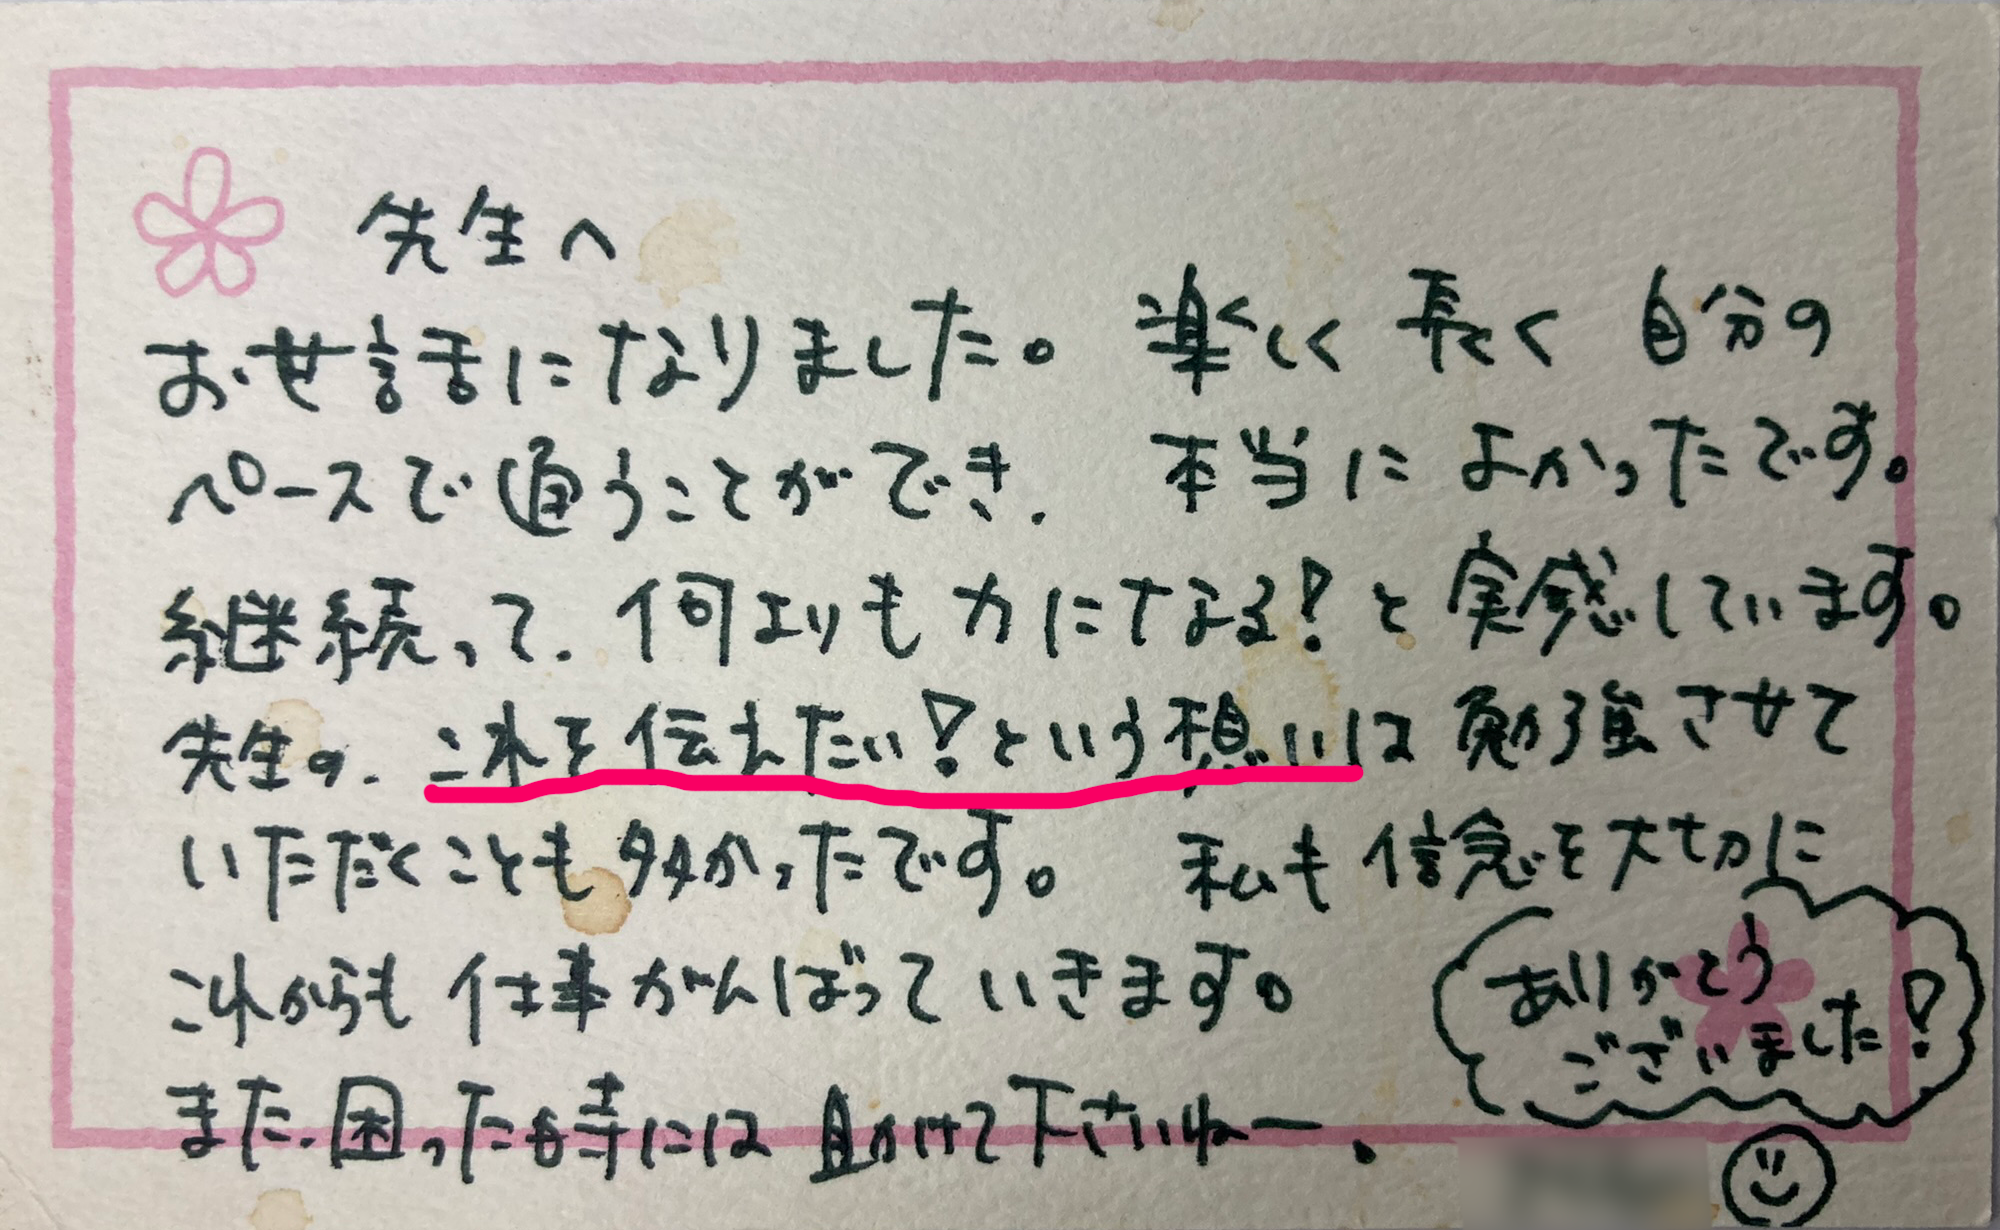 先生へ
お世話になりました。 楽しく 長く 自分の
ペースで通うことができ、 本当によかったです。
継続って、何よりも力になる!と実感しています。
先生の、これを伝えたい!という想いは勉強させて
いただくことも多かったです。 私も信念を大切に
これからも仕事がんばっていきます。
また、困った時には助けて下さいねー。
ありがとう
ございました!